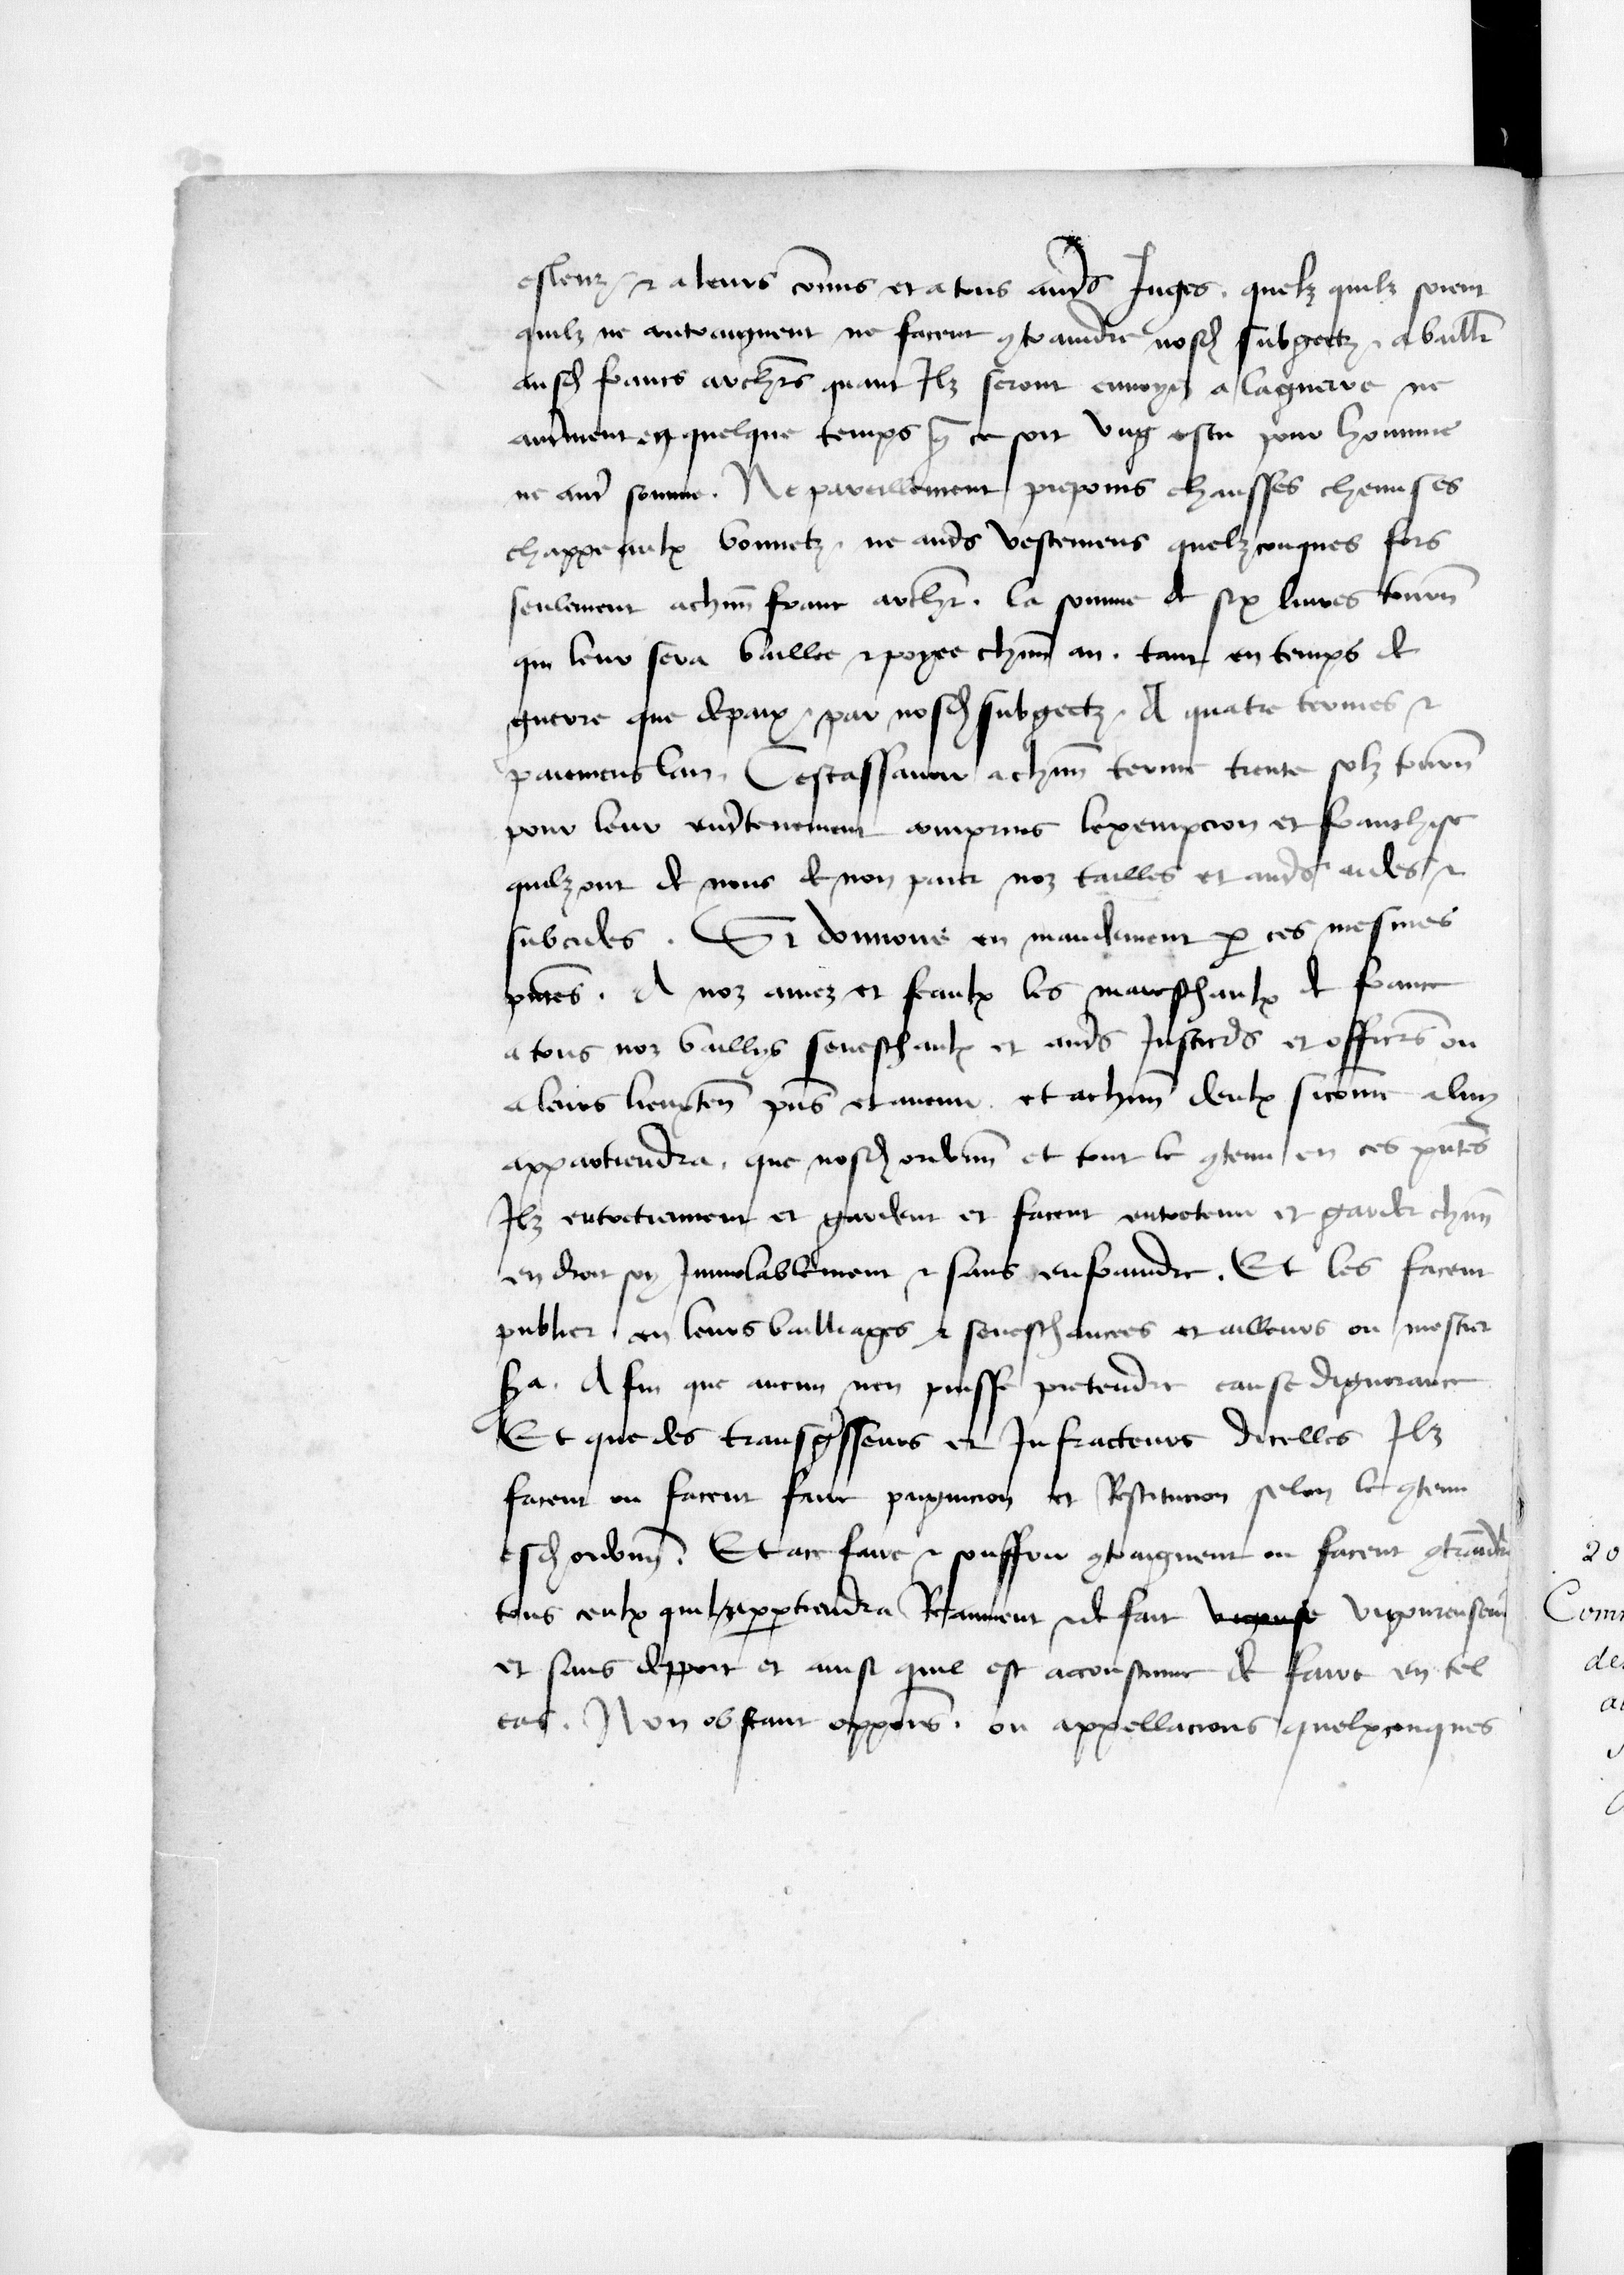 esleuz / et a leurs comis et a tous autres Juges . quelz quilz soient
quilz ne contraignent ne facent contraindre nosd subgectz a bailler
ausd francs archers quant Ilz seront envoyez a la guerre ne
autrement en quelque temps que ce soit ung escu pour homme
ne autre somme . Ne pareillement prepoins chausses chemises
chappeaulx bonnetz ne autres vestemens quelzconques fors
seulement a chun franc archer . la somme de six livres tourn
qui leur sera baillee et payee chun an . tant en temps de
guerre que de paix / par nosd subgectz . A quatre termes et
paiemens lan . Cestassavoir a chun terme trente solz tourn
pour leur entretenement comprins lexempcion et franchise
quilz ont de nous de non paier noz tailles et autres aides et
subcides . Si donnons en mandement par ces mesmes
pntes . A noz amez et feaulx les mareschaulx de france
a tous noz baillys seneschaulx et autres Justiciers et officiers ou
a leurs lieuxten pns et avenir . et a chun deulx sicomme a luy
appartiendra . que nosd ordonn et tout le contenu en ces pntes
Ilz entretiennent et gardent et facent entretenir et garder chun
en droit soy Inviolablement et sans enfraindre . Et les facent
publier en leurs bailliages et seneschaucees et ailleurs ou mestier
sera . A fin que aucun nen puisse pretendre cause dignorance
Et que des transgresseurs et Infracteurs dicelles Ilz
facent ou facent faire pugnicion et Restitucion selon le contenu
esd ordonn . Et a ce faire et souffrir contraignent ou facent contraindre
tous ceulx quil appartiendra Reaument et de fait vigouse vigoureusem
et sans depport et ainsi quil est acoustume de faire en tel
cas . Non obstant oppoins . ou appellacions quelxconques
20
Com
de